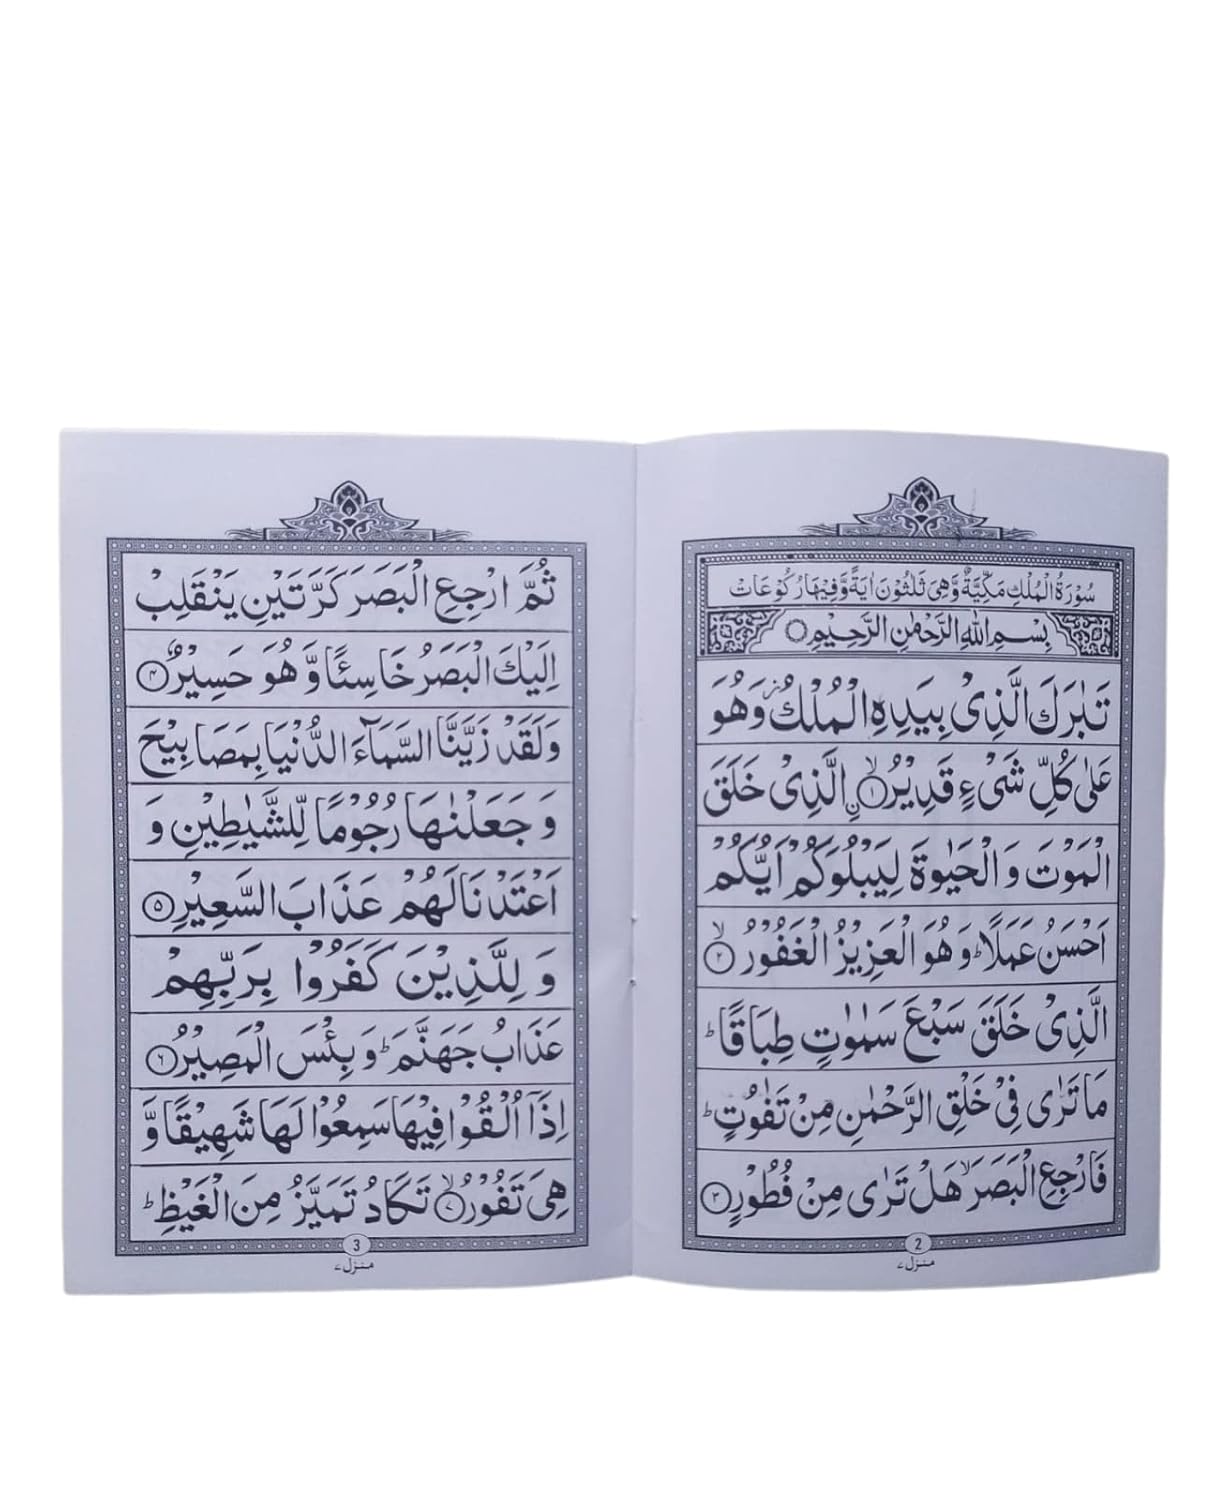 سُوْرَةُ الْمُلْكِ مَكِّيَّةٌ وَّهِىَ ثَلٰثُوْنَ اٰيَةً وَّفِيْهَا رُكُوْعَاتْ
بِسْمِ اللّٰهِ الرَّحْمٰنِ الرَّحِيْمِ
تَبٰرَكَ الَّذِىْ بِيَدِهِ الْمُلْكُ ز وَهُوَ
عَلٰى كُلِّ شَىْءٍ قَدِيْرُ ۙ﴿۱﴾ ۨالَّذِىْ خَلَقَ
الْمَوْتَ وَ الْحَيٰوةَ لِيَبْلُوَكُمْ اَيُّكُمْ
اَحْسَنُ عَمَلًا ؕ وَ هُوَ الْعَزِيْزُ الْغَفُوْرُ ۙ﴿۲﴾
الَّذِىْ خَلَقَ سَبْعَ سَمٰوٰتٍ طِبَاقًا ؕ
مَا تَرٰى فِىْ خَلْقِ الرَّحْمٰنِ مِنْ تَفٰوُتٍ ؕ
فَارْجِعِ الْبَصَرَ ۙ هَلْ تَرٰى مِنْ فُطُوْرٍ ﴿۳﴾
2
منزل ۷
ثُمَّ ارْجِعِ الْبَصَرَ كَرَّتَيْنِ يَنْقَلِبْ
اِلَيْكَ الْبَصَرُ خَاسِئًا وَّ هُوَ حَسِيْرٌ ﴿۴﴾
وَلَقَدْ زَيَّنَّا السَّمَآءَ الدُّنْيَا بِمَصَابِيْحَ
وَ جَعَلْنٰهَا رُجُوْمًا لِّلشَّيٰطِيْنِ وَ
اَعْتَدْنَا لَهُمْ عَذَابَ السَّعِيْرِ ﴿۵﴾
وَ لِلَّذِيْنَ كَفَرُوْا بِرَبِّهِمْ
عَذَابُ جَهَنَّمَ ؕ وَ بِئْسَ الْمَصِيْرُ ﴿۶﴾
اِذَآ اُلْقُوْا فِيْهَا سَمِعُوْا لَهَا شَهِيْقًا وَّ
هِىَ تَفُوْرُ ۙ﴿۷﴾ تَكَادُ تَمَيَّزُ مِنَ الْغَيْظِ ؕ
3
منزل ۷